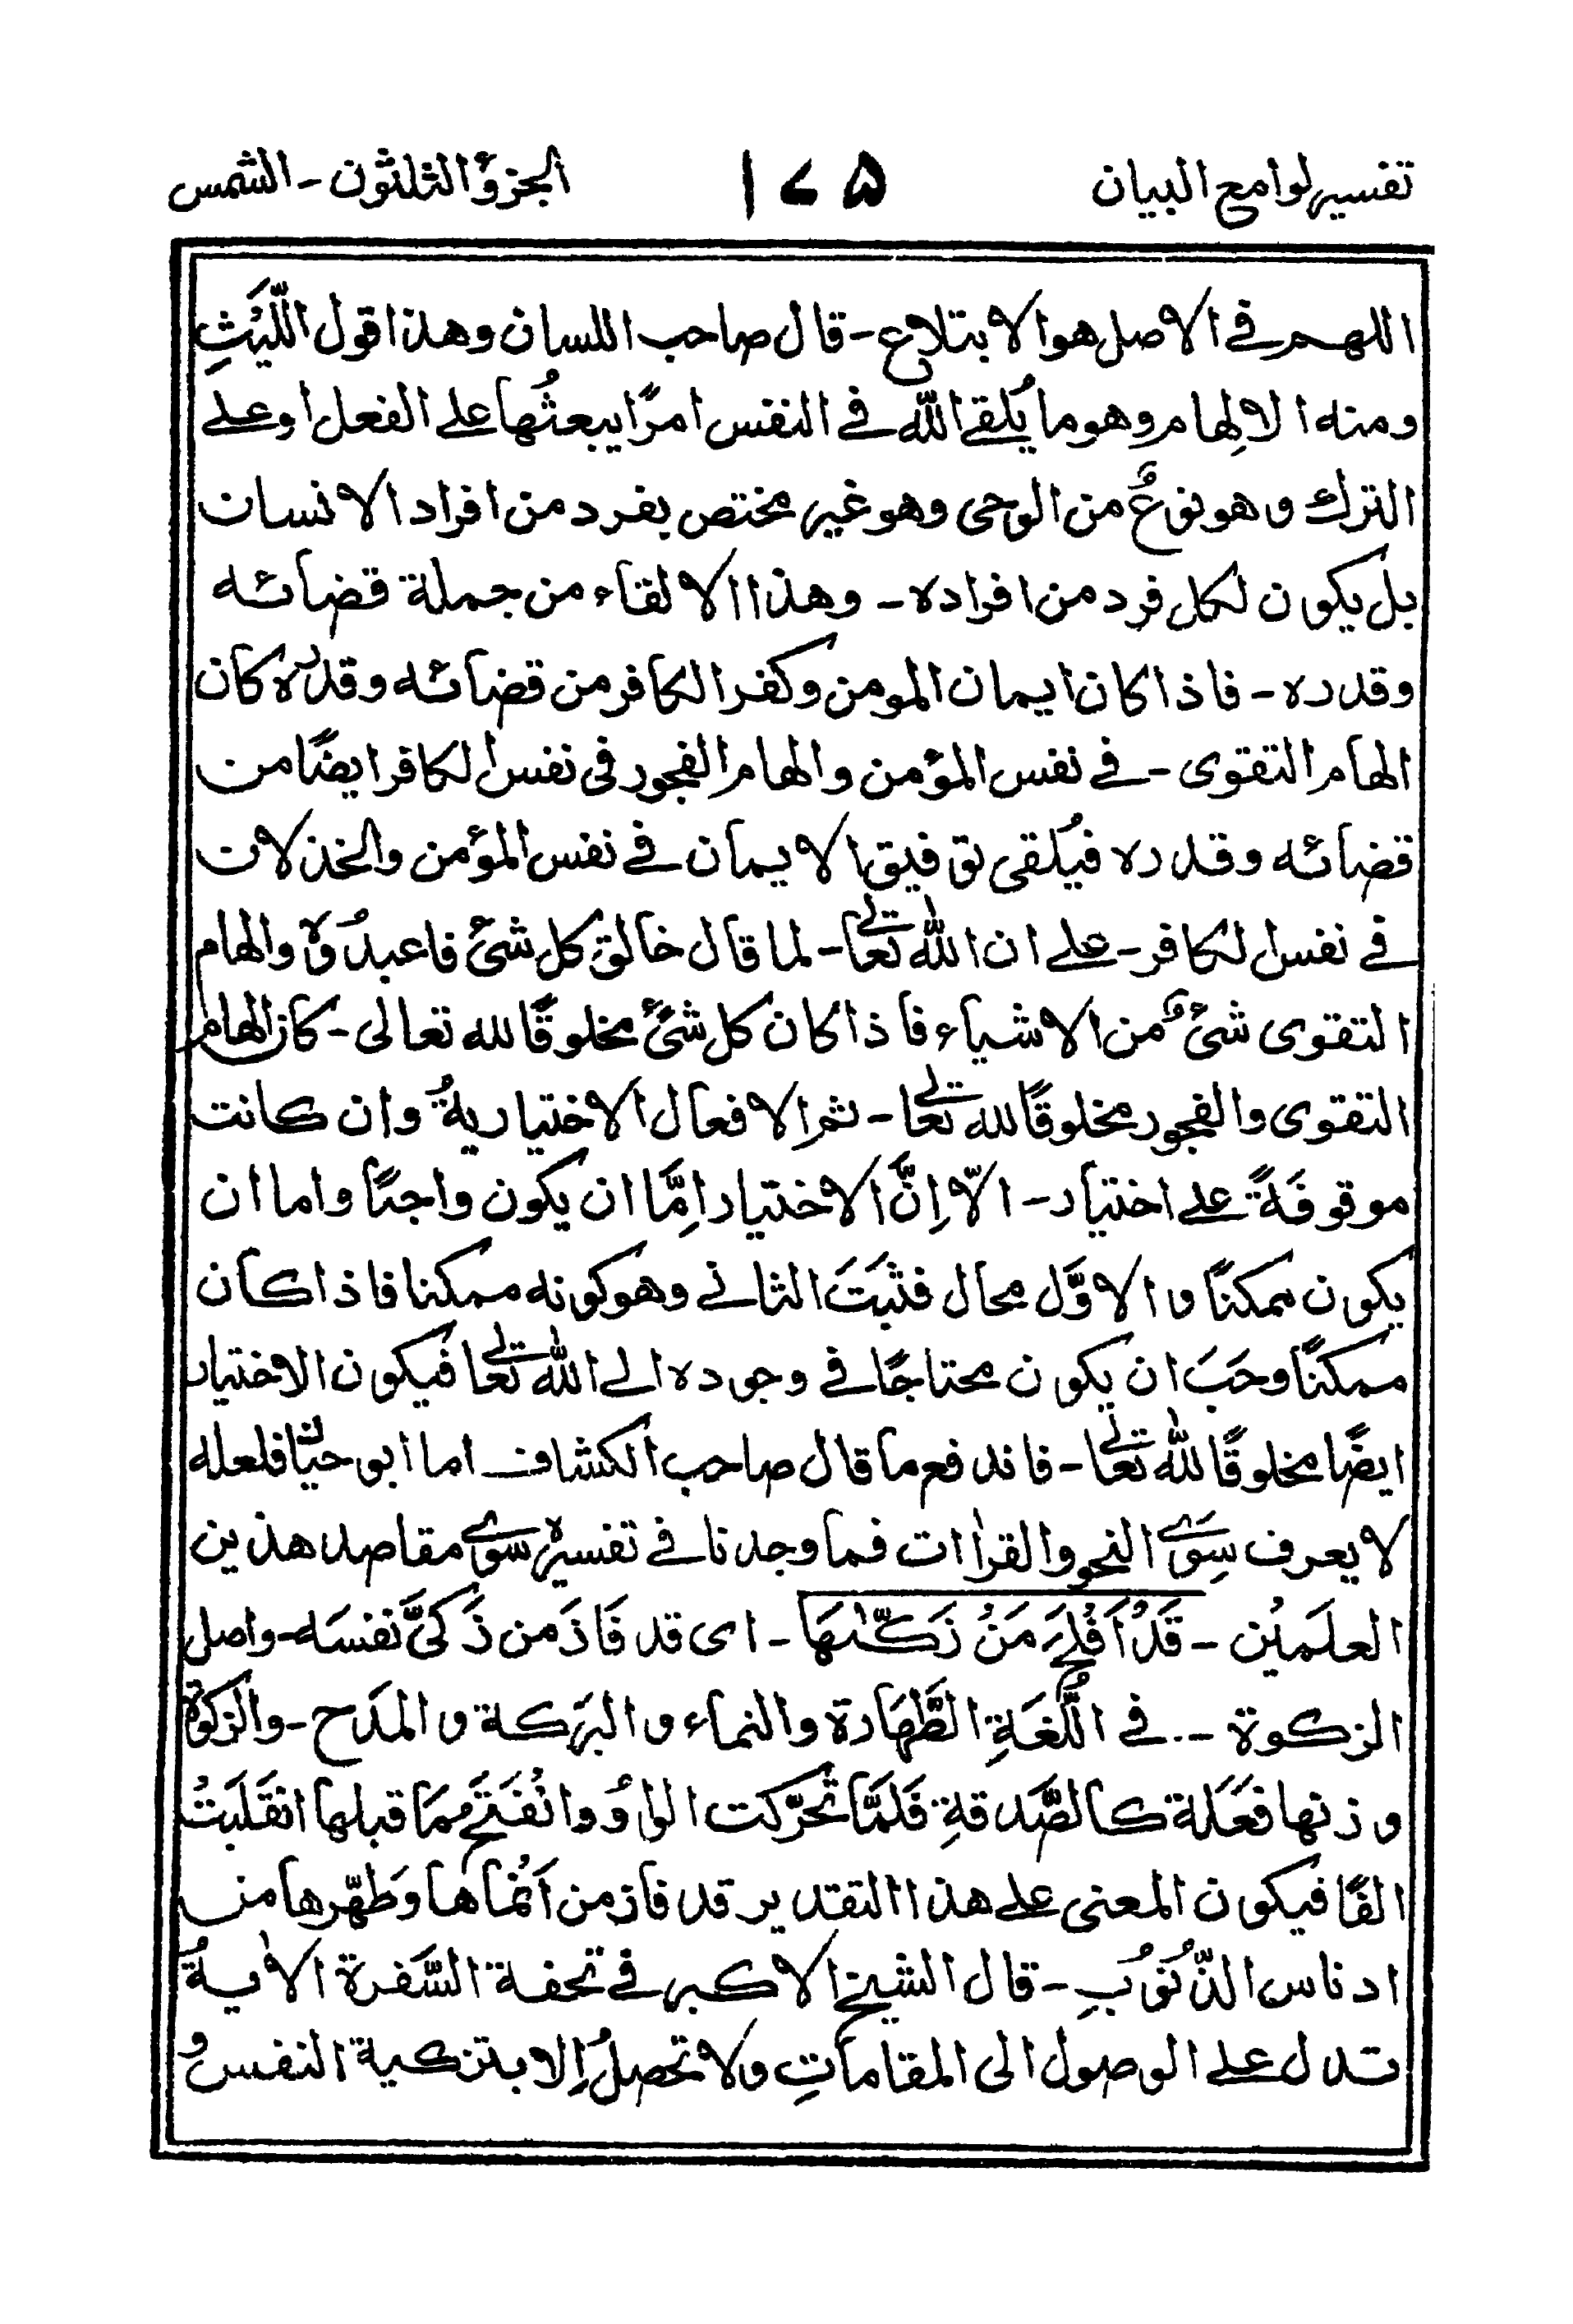 تفسير لوامع البيان ١٧٥ الجزؤ الثلثون - الشمس
اللهم في الاصل هو الابتلاع - قال صاحب اللسان وهذا قول اللَّيْثِ
ومنه الالِهام وهو ما يُلقے الله في النفس امرًا يبعثُها علے الفعل او علے
الترك وهو نوعٌ من الوحى وهو غير مختص بفرد من افراد الانسان
بل يكون لكل فرد من افراده - وهذا الالقاء من جملة قضائه
وقدره - فاذا كان ايمان المومن وكفر الكافر من قضائه وقدره كان
الهام التقوى - في نفس المؤمن والهام الفجور فى نفس الكافر ايضًا من
قضائه وقدره فيُلقى توفيق الايمان في نفس المؤمن والخذلان
في نفس الكافر - علے ان الله تعالے - لما قال خالق كل شئ فاعبدُوه والهام
التقوى شئٌ من الاشياء فاذا كان كل شئ مخلوقًا لله تعالى - كان الهام
التقوى والفجور مخلوقًا لله تعالے - ثم الافعال الاختياريةُ وان كانت
موقوفَةً علے اختيار - الّا اِنَّ الاختيار اِمَّا ان يكون واجبًا واما ان
يكون ممكنًا والاوَّل محال فثبَتَ الثاني وهو كونه ممكنا فاذا كان
ممكنًا وجَبَ ان يكون محتاجًا في وجوده الے الله تعالے فيكون الاختيار
ايضًا مخلوقًا لله تعالے - فاندفع ما قال صاحب الكشاف اما ابو حيّان فلعله
لا يعرف سِوَى النحو والقراٰات فما وجدنا في تفسيره سوى مقاصد هذين
العلمَيْن - قَدْ اَفْلَحَ مَنْ زَكّٰىهَا - اى قد فَازَ من زَكىَّ نفسَه - واصل
الزكوة - في اللُّغَةِ الطَّهَارة والنماء والبَرَكة والمَدَح - والزكوٰة
وزنها فَعَلة كالصَّدقةِ فَلَمَّا تحرّكت الواوُ وانْفَتَحَ مَا قبلها انقَلَبَتْ
الفًا فيكون المعنى علے هذا التقدير قد فاز من اَنْمَاها وَطهّرها من
ادناس الذّنُوْبِ - قال الشيخ الاكبر في تحفة السَّفرة الاٰيةُ
تدل علے الوصول الى المقاماتِ ولا تحصلُ اِلا بتزكية النفس و